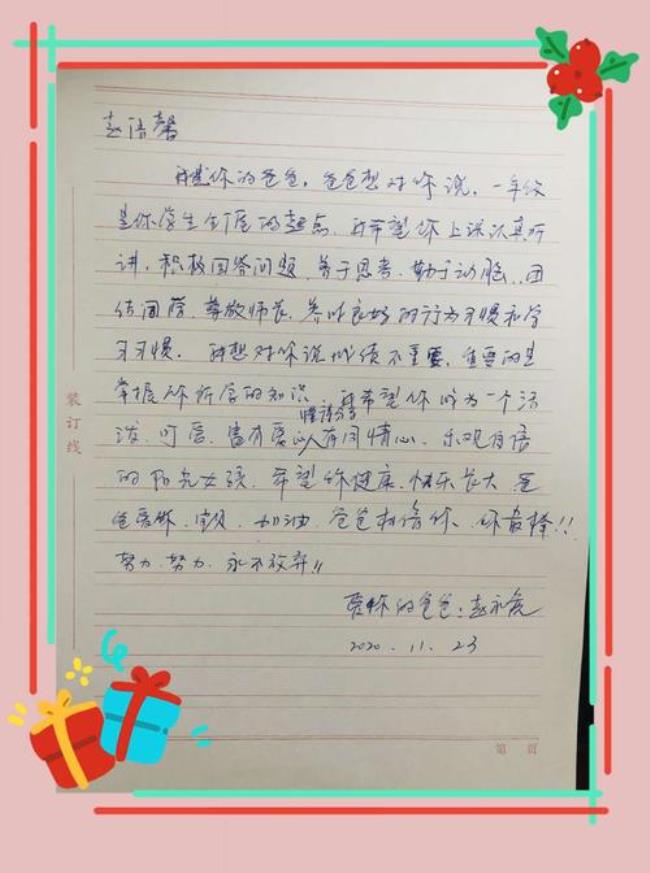 赵语馨
我是你的爸爸,爸爸想对你说,一年级
是你学生生涯的起点,我希望你上课认真听
讲,积极回答问题,善于思考,勤于动脑,团
结同学,尊敬师长,养成良好的行为习惯和学
习习惯。我想对你说成绩不重要,重要的是
掌握你所学的知识,我希望你成为一个活
懂得分享
泼、可爱、富有爱心有同情心、乐观自信
的阳光女孩,希望你健康、快乐长大,爸
爸爱你,宝贝,加油,爸爸相信你、你最棒!!
努力,努力,永不放弃!!
爱你的爸爸:赵永
2020.11.23
装订线
第 页